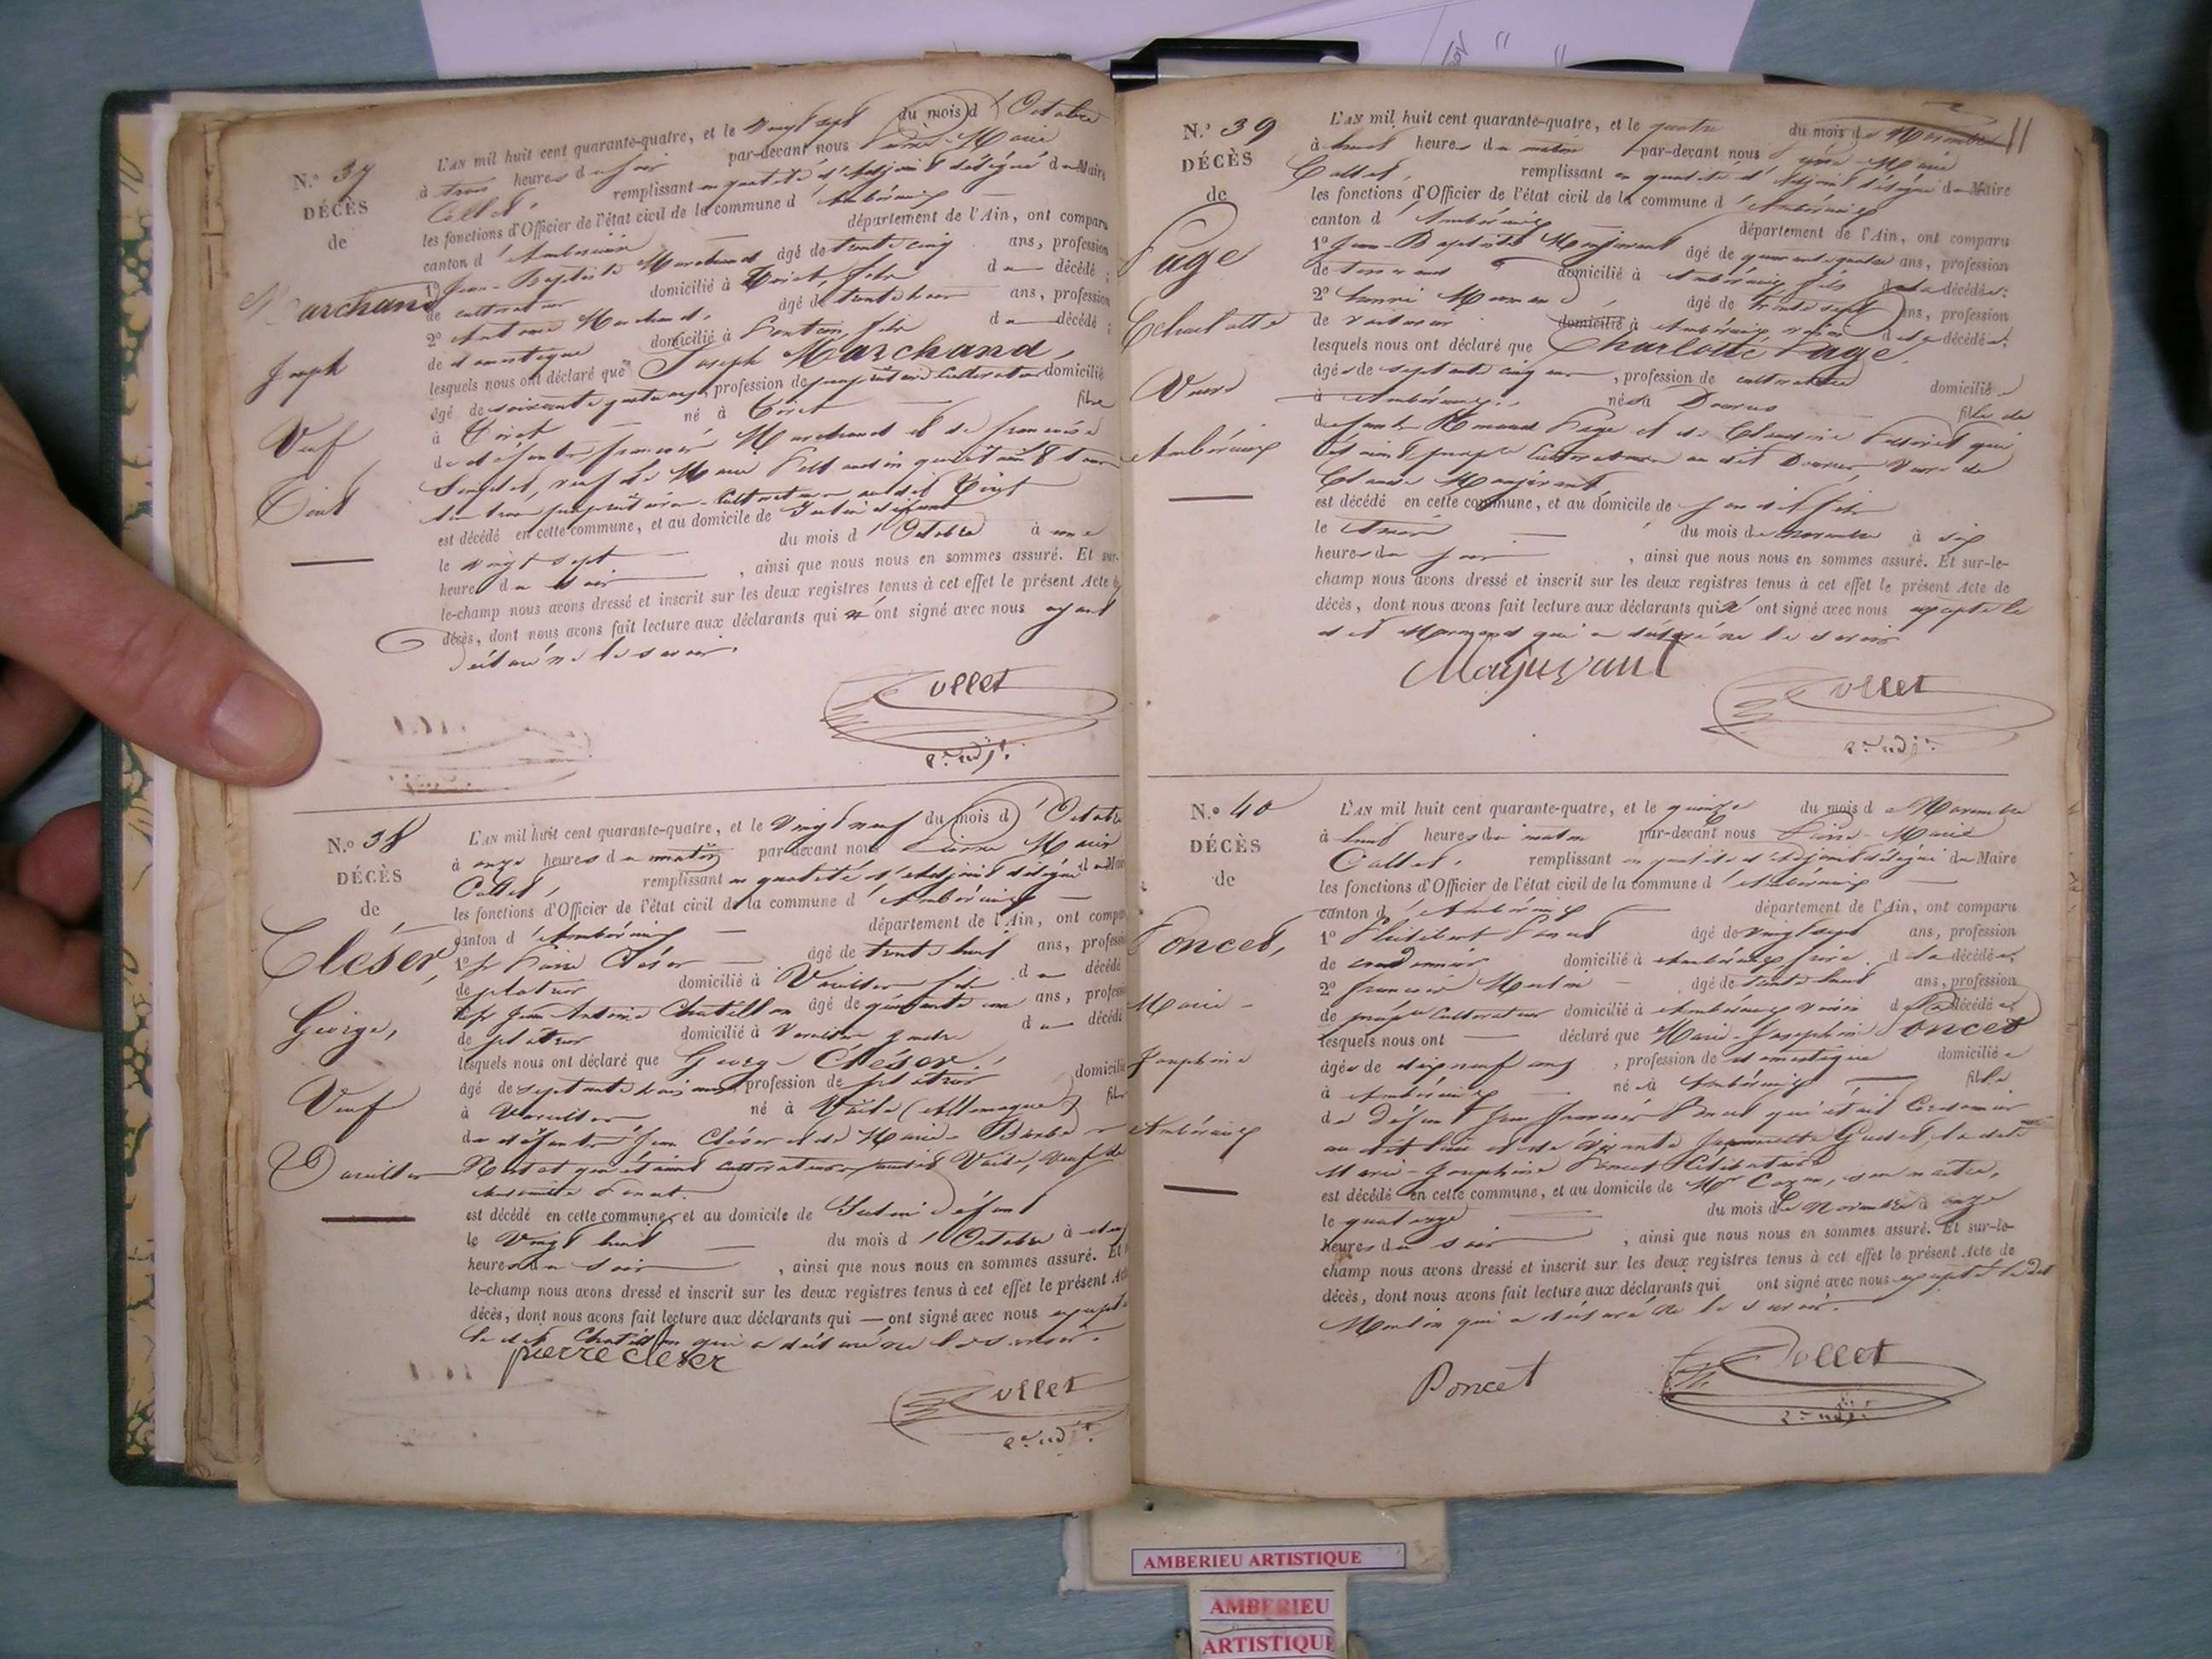 N.º 37
DÉCÈS
de
Marchand
Joseph
Veuf
L'AN mil huit cent quarante-quatre, et le vingt sept du mois d'Octobre
à trois heures du soir par-devant nous Pierre Marie
Collet, remplissant en qualité d'Adjoint délégué du Maire
les fonctions d'Officier de l'état civil de la commune d'Ambérieux
canton d'Ambérieux département de l'Ain, ont comparu
1º Jean-Baptiste Marchand âgé de trente cinq ans, profession
de cultivateur domicilié à fils du décédé;
2º Antoine Marchand, âgé de ans, profession
de domestique domicilié à fils du décédé;
lesquels nous ont déclaré que Joseph Marchand,
âgé de soixante quatorze ans, profession de propriétaire Cultivateur domicilié
à né à fils
de défunts françois Marchand et de françoise
veuf de Marie qui étaient
propriétaires-Cultivateurs audit
est décédé en cette commune, et au domicile de
le vingt sept du mois d'Octobre à une
heure du soir, ainsi que nous nous en sommes assuré. Et sur-
le-champ nous avons dressé et inscrit sur les deux registres tenus à cet effet le présent Acte de
décès, dont nous avons fait lecture aux déclarants qui n'ont signé avec nous ayant
déclaré ne le savoir.
Collet
2me adjt.
N.º 38
DÉCÈS
de
Cléser,
George,
Veuf
Vareilles
L'AN mil huit cent quarante-quatre, et le vingt neuf du mois d'Octobre
à onze heures du matin par-devant nous Pierre Marie
Collet, remplissant en qualité d'Adjoint délégué du Maire
les fonctions d'Officier de l'état civil de la commune d'Ambérieux
canton d'Ambérieux département de l'Ain, ont comparu
1º Pierre Cléser âgé de trente huit ans, profession
de platrier domicilié à Vareilles fils du décédé
2º Jean Antoine Chatillon âgé de ans, profession
de platrier domicilié à Vareilles gendre du décédé
lesquels nous ont déclaré que George Cléser,
âgé de septante trois ans, profession de platrier domicilié
à Vareilles né à (Allemagne) fils
de défunts Jean Cléser et de Marie-Barbe
qui étaient cultivateurs audit veuf de
est décédé en cette commune, et au domicile de
le vingt huit du mois d'Octobre à
heures du soir, ainsi que nous nous en sommes assuré. Et
le-champ nous avons dressé et inscrit sur les deux registres tenus à cet effet le présent Acte
décès, dont nous avons fait lecture aux déclarants qui — ont signé avec nous excepté
le dit Chatillon qui a déclaré ne le savoir.
pierre cleser
Collet
2me adjt.
11
N.º 39
DÉCÈS
de
Page
Charlotte
Veuve
Ambérieux
L'AN mil huit cent quarante-quatre, et le quatre du mois de Novembre
à huit heures du matin par-devant nous Pierre-Marie
Collet, remplissant en qualité d'Adjoint délégué du Maire
les fonctions d'Officier de l'état civil de la commune d'Ambérieux
canton d'Ambérieux département de l'Ain, ont comparu
1º Jean-Baptiste Monjuvant âgé de quarante quatre ans, profession
de domicilié à Ambérieux fils de la décédée;
2º âgé de trente sept ans, profession
de domicilié à Ambérieux voisin de la décédée;
lesquels nous ont déclaré que Charlotte Page,
âgée de septante cinq ans, profession de cultivatrice domiciliée
à Ambérieux, née à Douvres fille de
défunts Page et de Claudine qui
étaient Cultivateurs au dit Douvres, veuve de
Claude Monjuvant
est décédé en cette commune, et au domicile de son dit fils
le trois du mois de novembre à six
heures du soir, ainsi que nous nous en sommes assuré. Et sur-le-
champ nous avons dressé et inscrit sur les deux registres tenus à cet effet le présent Acte de
décès, dont nous avons fait lecture aux déclarants qui ont signé avec nous excepté le
dit qui a déclaré ne le savoir
Monjuvant
Collet
2me adjt.
N.º 40
DÉCÈS
de
Poncet,
Marie-
Josephine
Ambérieux
L'AN mil huit cent quarante-quatre, et le quinze du mois de Novembre
à huit heures du matin par-devant nous Pierre-Marie
Collet, remplissant en qualité d'Adjoint délégué du Maire
les fonctions d'Officier de l'état civil de la commune d'Ambérieux
canton d'Ambérieux département de l'Ain, ont comparu
1º Philibert Poncet âgé de vingt sept ans, profession
de cordonnier domicilié à Ambérieux frère de la décédée,
2º françois Moulin âgé de trente huit ans, profession
de propre Cultivateur domicilié à Ambérieux voisin de la décédée
lesquels nous ont déclaré que Marie-Josephine Poncet
âgée de dix neuf ans, profession de domestique domiciliée
à Ambérieux née à Ambérieux fille
de défunt Jean françois Poncet qui était Cordonnier
au dit lieu et de vivante la dite
Marie-Josephine Poncet Célibataire
est décédé en cette commune, et au domicile de Mr son maître,
le quatorze du mois de Novembre à onze
heures du soir, ainsi que nous nous en sommes assuré. Et sur-le-
champ nous avons dressé et inscrit sur les deux registres tenus à cet effet le présent Acte de
décès, dont nous avons fait lecture aux déclarants qui ont signé avec nous excepté le dit
Moulin qui a déclaré ne le savoir.
Poncet
Collet
2me adjt.
AMBERIEU ARTISTIQUE
AMBERIEU
ARTISTIQUE